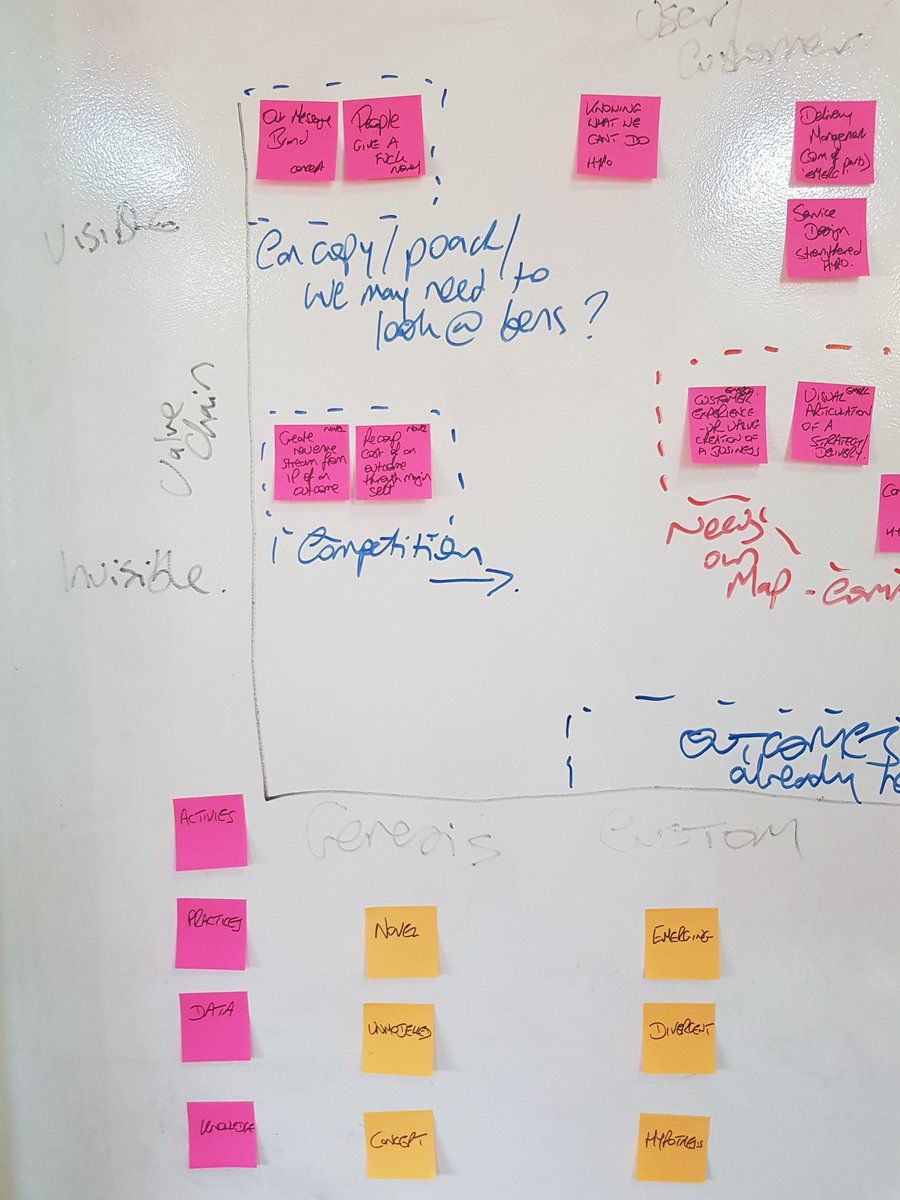 User/
Customer
Our Message
Brand
CONCEPT
People
GIVE A
FUCK
NOVEL
KNOWING
WHAT WE
CAN'T DO
HYPO
Delivery
Management
EMERG
Service
Design
strengthened
HYPO.
Visible
Can copy/poach/
we may need to
look@ bens?
Value
Chain
NOVEL
Create
revenue
stream from
IP of an
outcome
NOVEL
Recoup
cost of an
outcome
through margin
sell
EMERG.
CUSTOMER
EXPERIENCE
-OR VALUE
CREATION OF
A BUSINESS
EMERG
VISUAL
ARTICULATION
OF A
STRATEGY/
DELIVERY.
Competition
Needs
own
Map -
Invisible.
OUTCOME
already
ACTIVIES
Genesis
CUSTOM
PRACTICES
NOVEL
EMERGING
DATA
UNMODELLED
DIVERGENT
KNOWLEDGE
CONCEPT
HYPOTHESIS